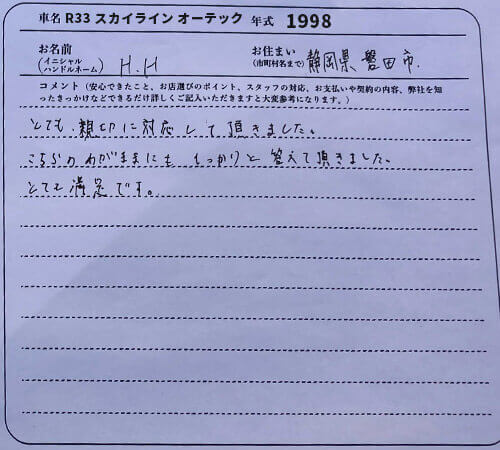 車名 R33 スカイライン オーテック 年式 1998
お名前 (イニシャル ハンドルネーム) H.H お住まい (市町村名まで) 静岡県 磐田市.
コメント (安心できたこと、お店選びのポイント、スタッフの対応、お支払いや契約の内容、弊社を知
ったきっかけなどできるだけ詳しくご記入いただきますと大変参考になります。)
とても 親切に対応して頂きました。
こちらのわがままにも しっかりと 答えて頂きました。
とても満足です。